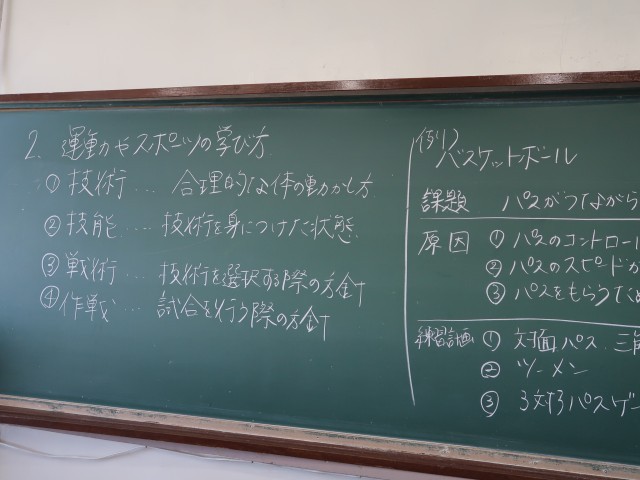 2. 運動やスポーツの学び方
① 技術 … 合理的な体の動かし方
② 技能 … 技術を身につけた状態
③ 戦術 … 技術を選択する際の方針
④ 作戦 … 試合を行う際の方針
例1)
バスケットボール
課題 パスがつながら
原因 ① パスのコントロール
② パスのスピードが
③ パスをもらうため
練習計画 ① 対面パス 三角
② ツーメン
③ 3対3パスゲー